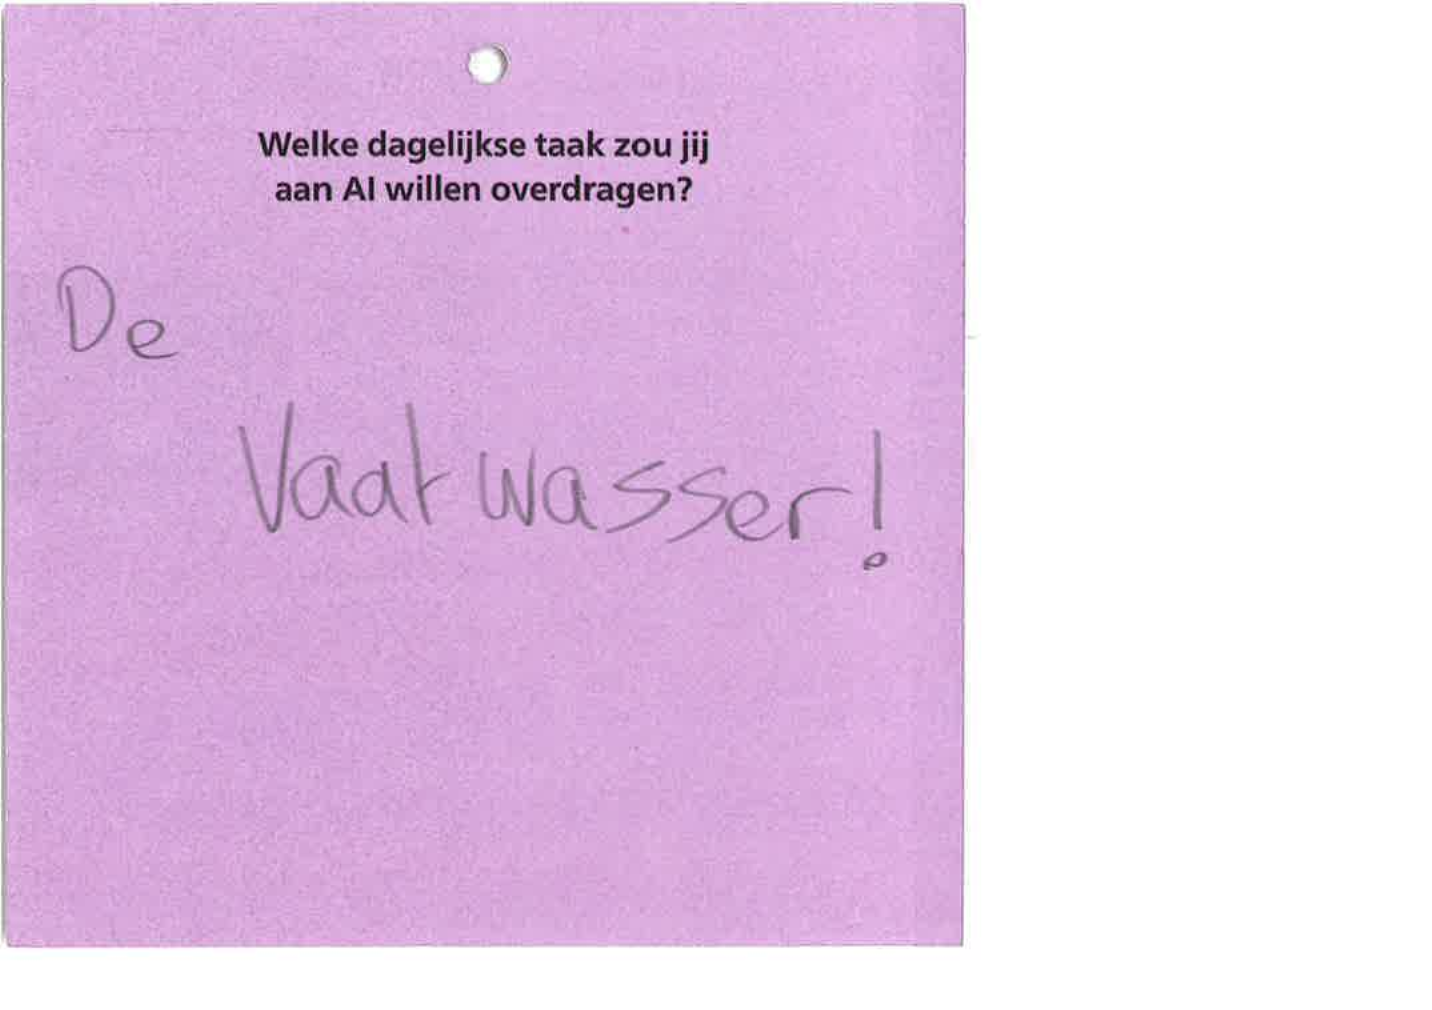 Welke dagelijkse taak zou jij
aan AI willen overdragen?
De
Vaatwasser!